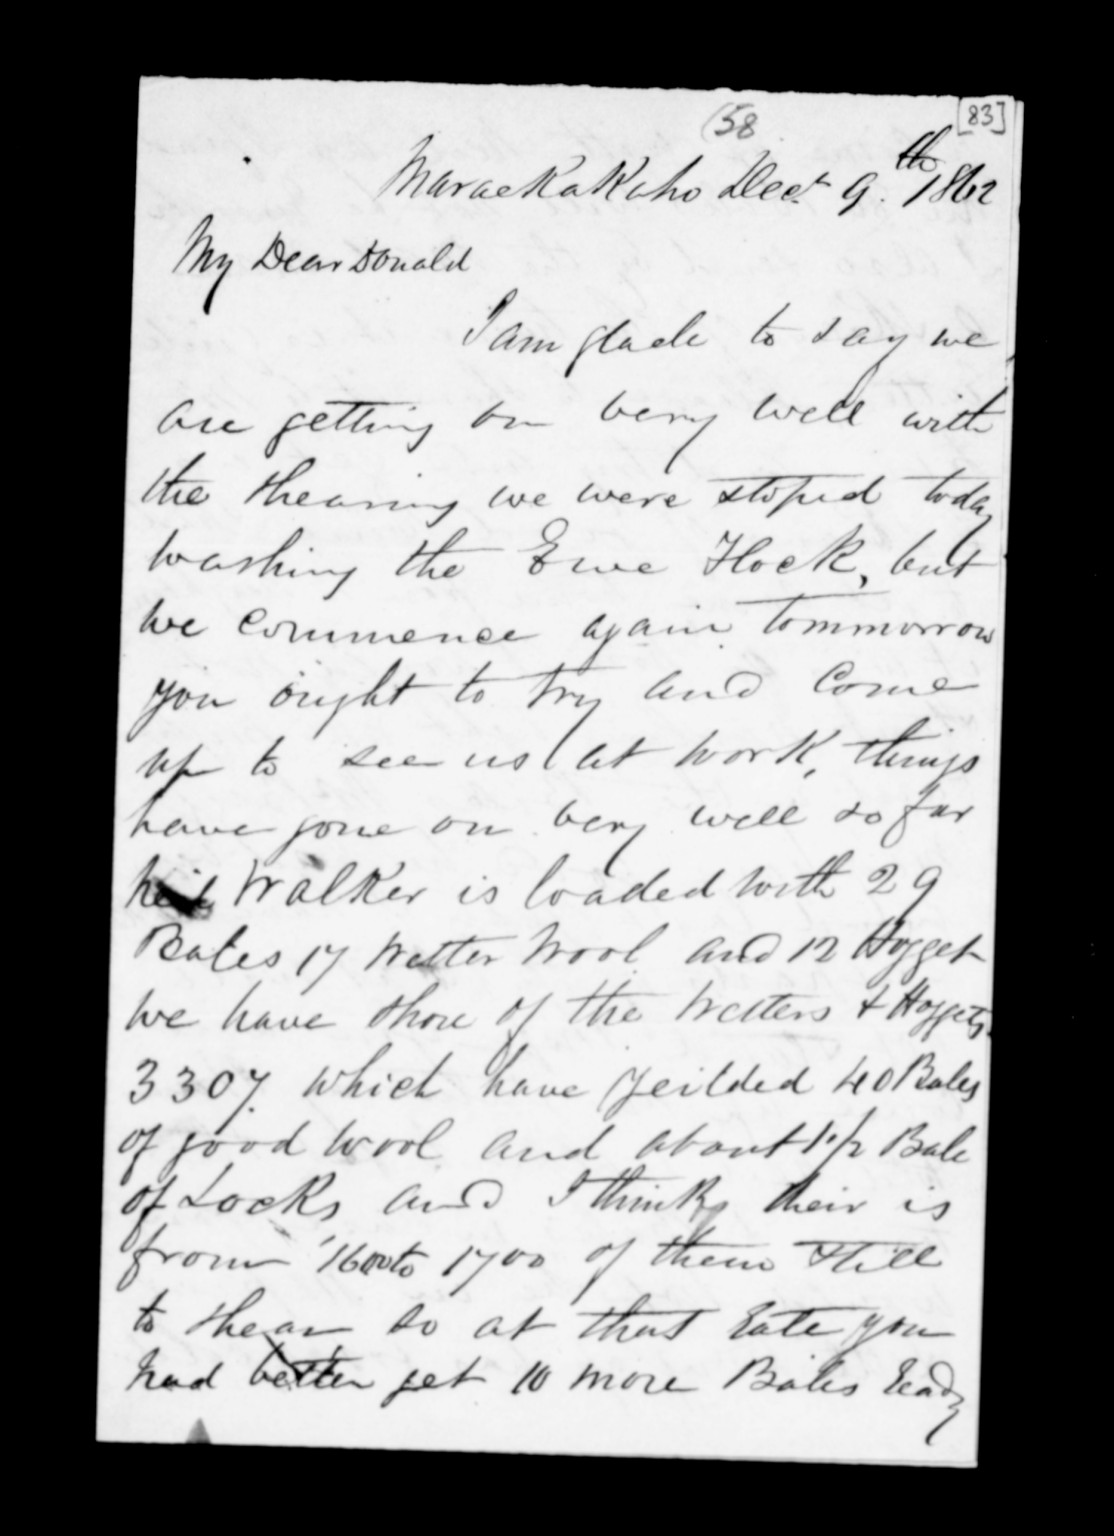 (58
[83]
Maraekakaho Decr 9th. 1862
My Dear Donald
I am glade to say we
are getting on very well with
the shearing we were stoped today
washing the Ewe Flock, but
we commence again tommorrow
you ought to try and come
up to see us at work, things
have gone on very well so far
Walker is loaded with 29
Bales 17 Wetter Wool and 12 Hogget
we have shore of the Wetters & Hoggets
3307. which have yeilded 40 Bales
of good wool and about 1 1/2 Bale
of Locks and I think their is
from 1600 to 1700 of them still
to shear so at that rate you
had better get 10 more Bales ready